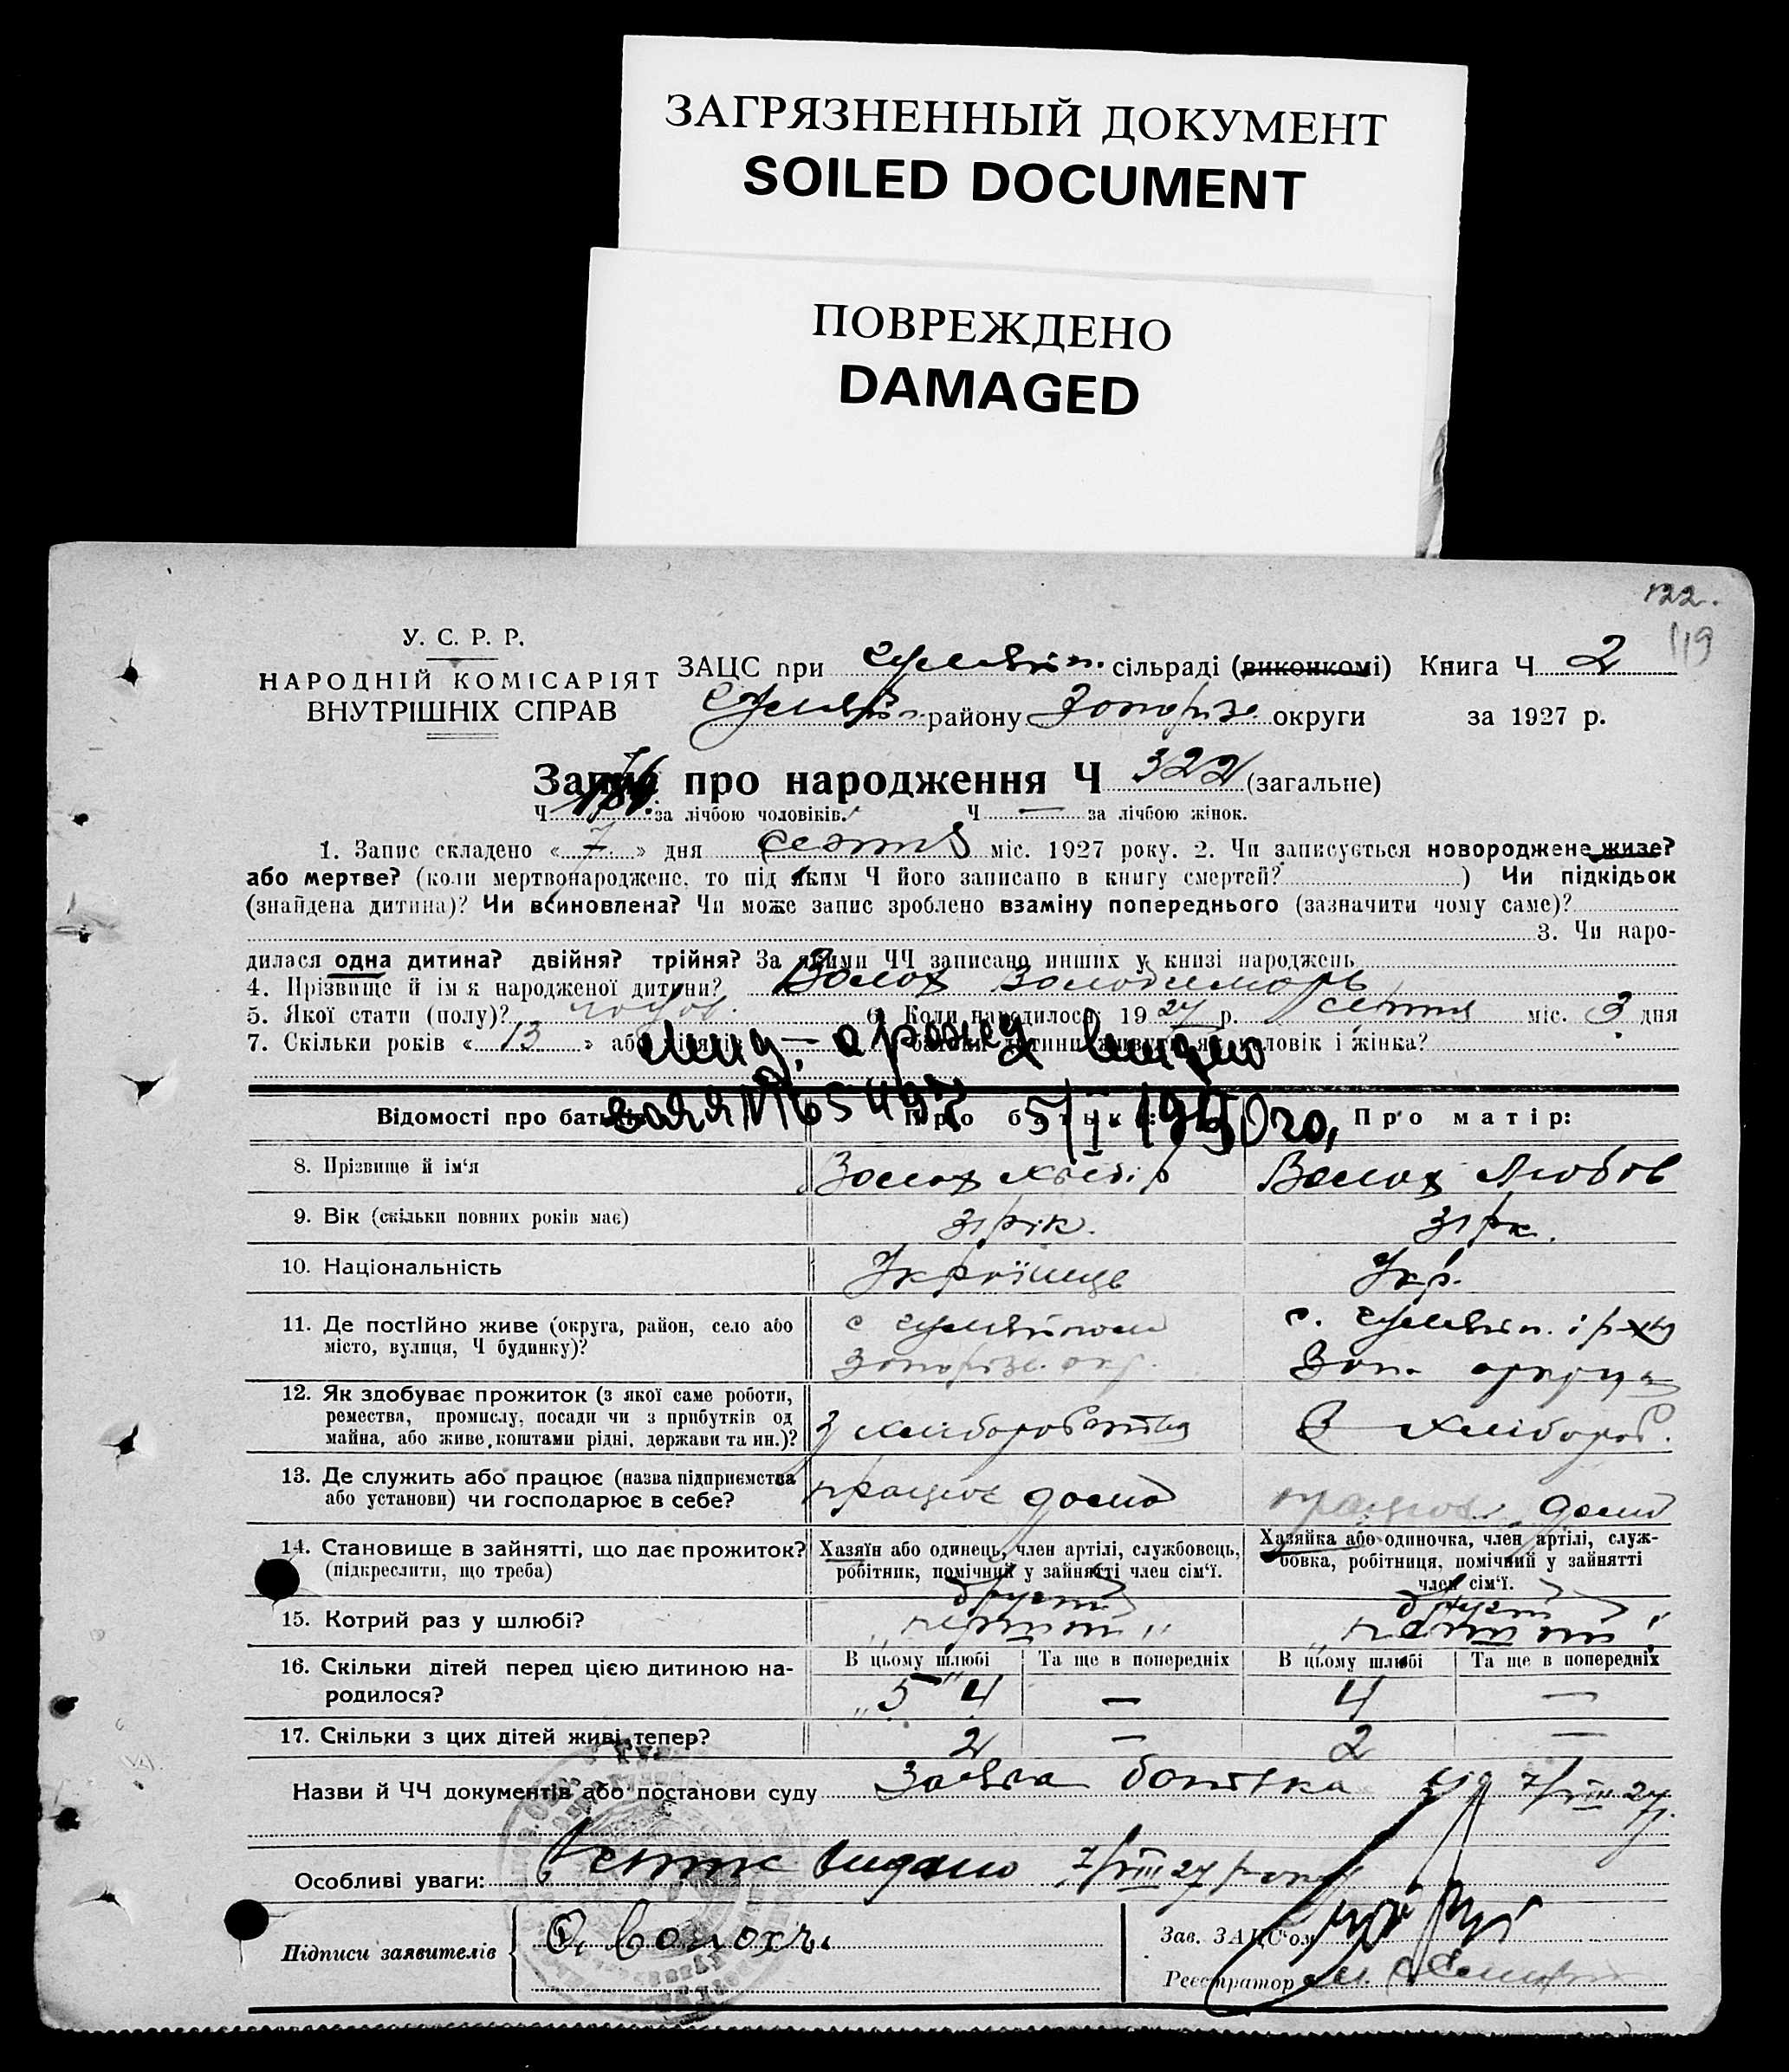 ЗАГРЯЗНЕННЫЙ ДОКУМЕНТ
SOILED DOCUMENT
ПОВРЕЖДЕНО
DAMAGED
122.
119
У. С. Р. Р.
НАРОДНІЙ КОМІСАРІЯТ
ВНУТРІШНІХ СПРАВ
ЗАЦС при сільраді (виконкомі) Книга Ч 2
району округи за 1927 р.
Запис про народження Ч 322 (загальне)
Ч за лічбою чоловіків. Ч — за лічбою жінок.
1. Запис складено « 7 » дня міс. 1927 року. 2. Чи записується новороджене живе?
або мертве? (коли мертвонароджене, то під яким Ч його записано в книгу смертей? ) Чи підкідьок
(знайдена дитина)? Чи всиновлена? Чи може запис зроблено взаміну попереднього (зазначити чому саме)?
3. Чи наро-
дилася одна дитина? двійня? трійня? За якими ЧЧ записано инших у книзі народжень
4. Прізвище й ім'я народженої дитини? Волох
5. Якої стати (полу)? 6. Коли народилося: 19 27 р. міс. 3 дня
7. Скільки років « 13 » або дитини живуть як чоловік і жінка?
видано
5/II 1950 го,
Відомості про батьків Про батька: Про матір:
8. Прізвище й ім'я Волох Волох Любов
9. Вік (скільки повних років має) 31 рік. 31 рк.
10. Національність Українець Укр.
11. Де постійно живе (округа, район, село або
місто, вулиця, Ч будинку)? с с.
Запоріз. окр. Зап. округи
12. Як здобуває прожиток (з якої саме роботи,
ремества, промислу, посади чи з прибутків од
майна, або живе коштами рідні, держави та ин.)? З хліборобства З хлібороб.
13. Де служить або працює (назва підприємства
або установи) чи господарює в себе? працює дома працює дома
14. Становище в зайнятті, що дає прожиток?
(підкреслити, що треба)
Хазяїн або одинець, член артілі, службовець,
робітник, помічний у зайнятті член сім'ї.
Хазяйка або одиночка, член артілі, служ-
бовка, робітниця, помічний у зайнятті
член сім'ї.
другий другий
15. Котрий раз у шлюбі? „перший" „перший"
16. Скільки дітей перед цією дитиною на-
родилося?
В цьому шлюбі Та ще в попередніх В цьому шлюбі Та ще в попередніх
„5" 4 — 4 —
17. Скільки з цих дітей живі тепер? 2 — 2 —
Назви й ЧЧ документів або постанови суду Заява батька від 7/VIII 27
Особливі уваги: видано 7/VIII 27
Підписи заявителів Волохъ
Зав. ЗАЦС'ом
Реєстратор